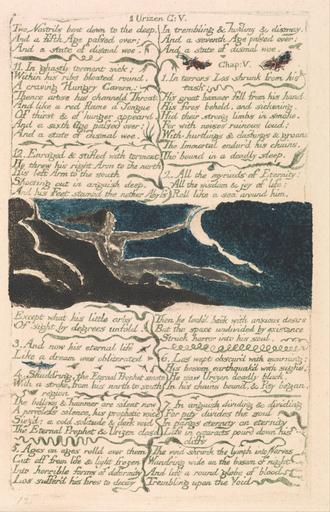 1 Urizen C: V.
Two Nostrils bent down to the deep.
And a fifth Age passed over;
And a state of dismal woe.
11. In ghastly torment sick;
Within his ribs bloated round,
A craving Hungry Cavern;
Thence arose his channeld Throat,
And like a red flame a Tongue
Of thirst & of hunger appeard
And a sixth Age passed over:
And a state of dismal woe.
12. Enraged & stifled with torment
He threw his right Arm to the north
His left Arm to the south
Shooting out in anguish deep,
And his Feet stamp'd the nether Abyss
In trembling & howling & dismay.
And a seventh Age passed over:
And a state of dismal woe.
Chap: V.
1. In terrors Los shrunk from his
task:
His great hammer fell from his hand:
His fires beheld, and sickening,
Hid their strong limbs in smoke.
For with noises ruinous loud;
With hurtlings & clashings & groans
The Immortal endur'd his chains,
Tho' bound in a deadly sleep.
2. All the myriads of Eternity:
All the wisdom & joy of life:
Roll like a sea around him,
Except what his little orbs
Of sight by degrees unfold.
3. And now his eternal life
Like a dream was obliterated
4. Shudd'ring, the Eternal Prophet smote
With a stroke, from his north to south
region
The bellows & hammer are silent now
A nerveless silence, his prophetic voice
Siez'd; a cold solitude & dark void
The Eternal Prophet & Urizen clos'd
5. Ages on ages rolld over them
Cut off from life & light frozen
Into horrible forms of deformity
Los sufferd his fires to decay
Then he look'd back with anxious desire
But the space undivided by existence
Struck horror into his soul.
6. Los wept obscur'd with mourning:
His bosom earthquak'd with sighs;
He saw Urizen deadly black,
In his chains bound, & Pity began,
7. In anguish dividing & dividing
For pity divides the soul
In pangs eternity on eternity
Life in cataracts pourd down his
cliffs
The void shrunk the lymph into Nerves
Wand'ring wide on the bosom of night
And left a round globe of blood
Trembling upon the Void